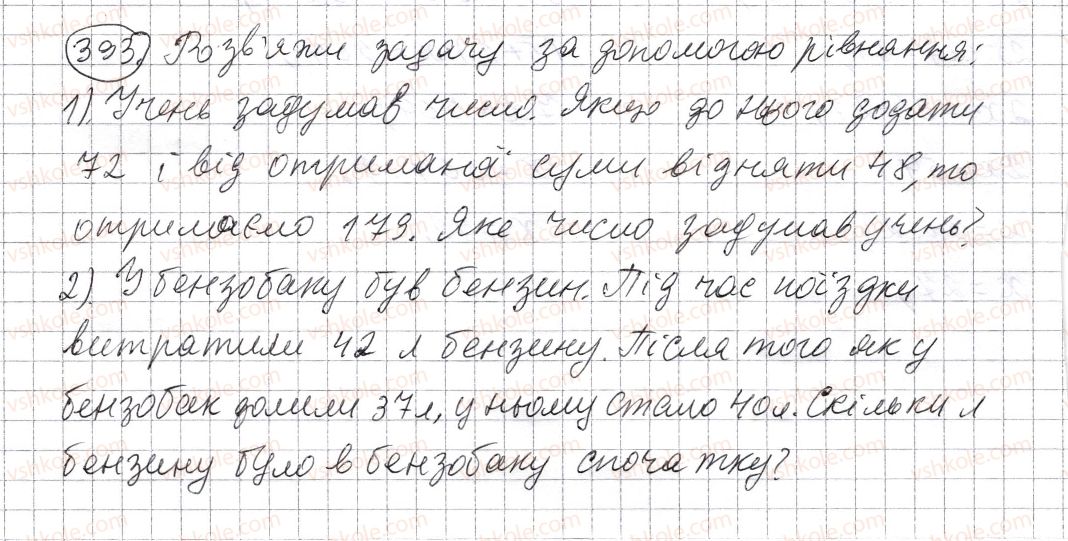 393. Розв'яжи задачу за допомогою рівняння:
1). Учень задумав число. Якщо до нього додати
72 і від отриманої суми відняти 48, то
отримаємо 179. Яке число задумав учень?
2). У бензобаку був бензин. Під час поїздки
витратили 42 л бензину. Після того як у
бензобак долили 37л, у ньому стало 40л. Скільки л
бензину було в бензобаку спочатку?